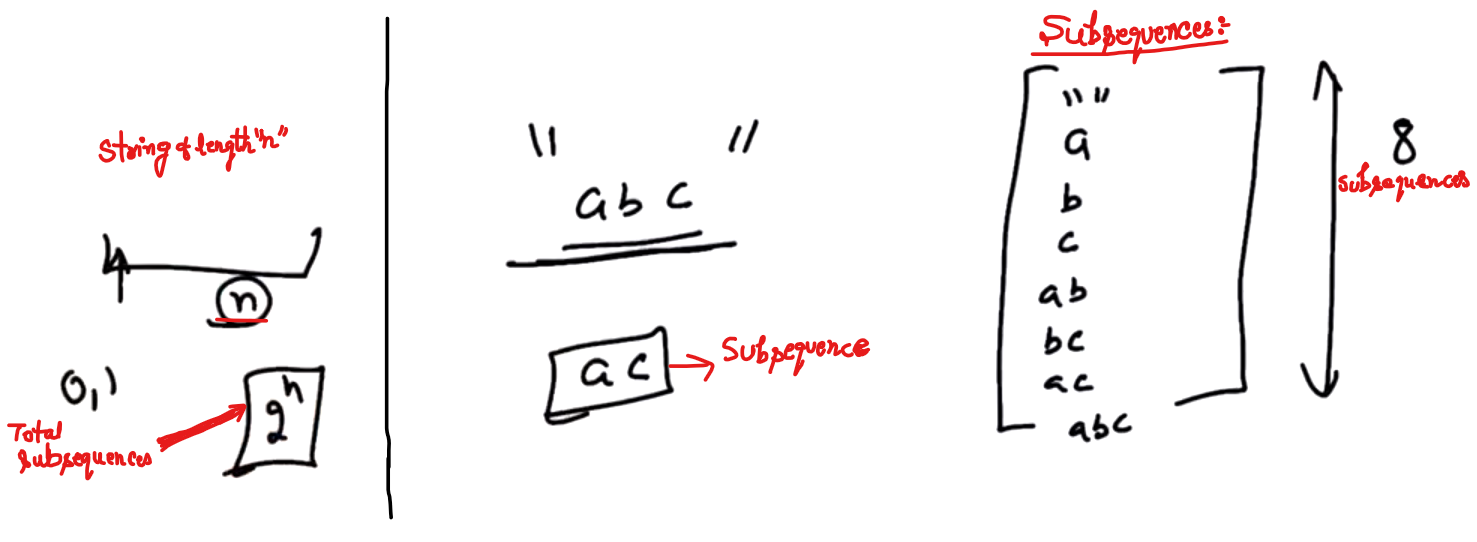 String of length "n"
n
0,1
2^n
Total
subsequences
" "
abc
ac
Subsequence
Subsequences:-
" "
a
b
c
ab
bc
ac
abc
8
subsequences